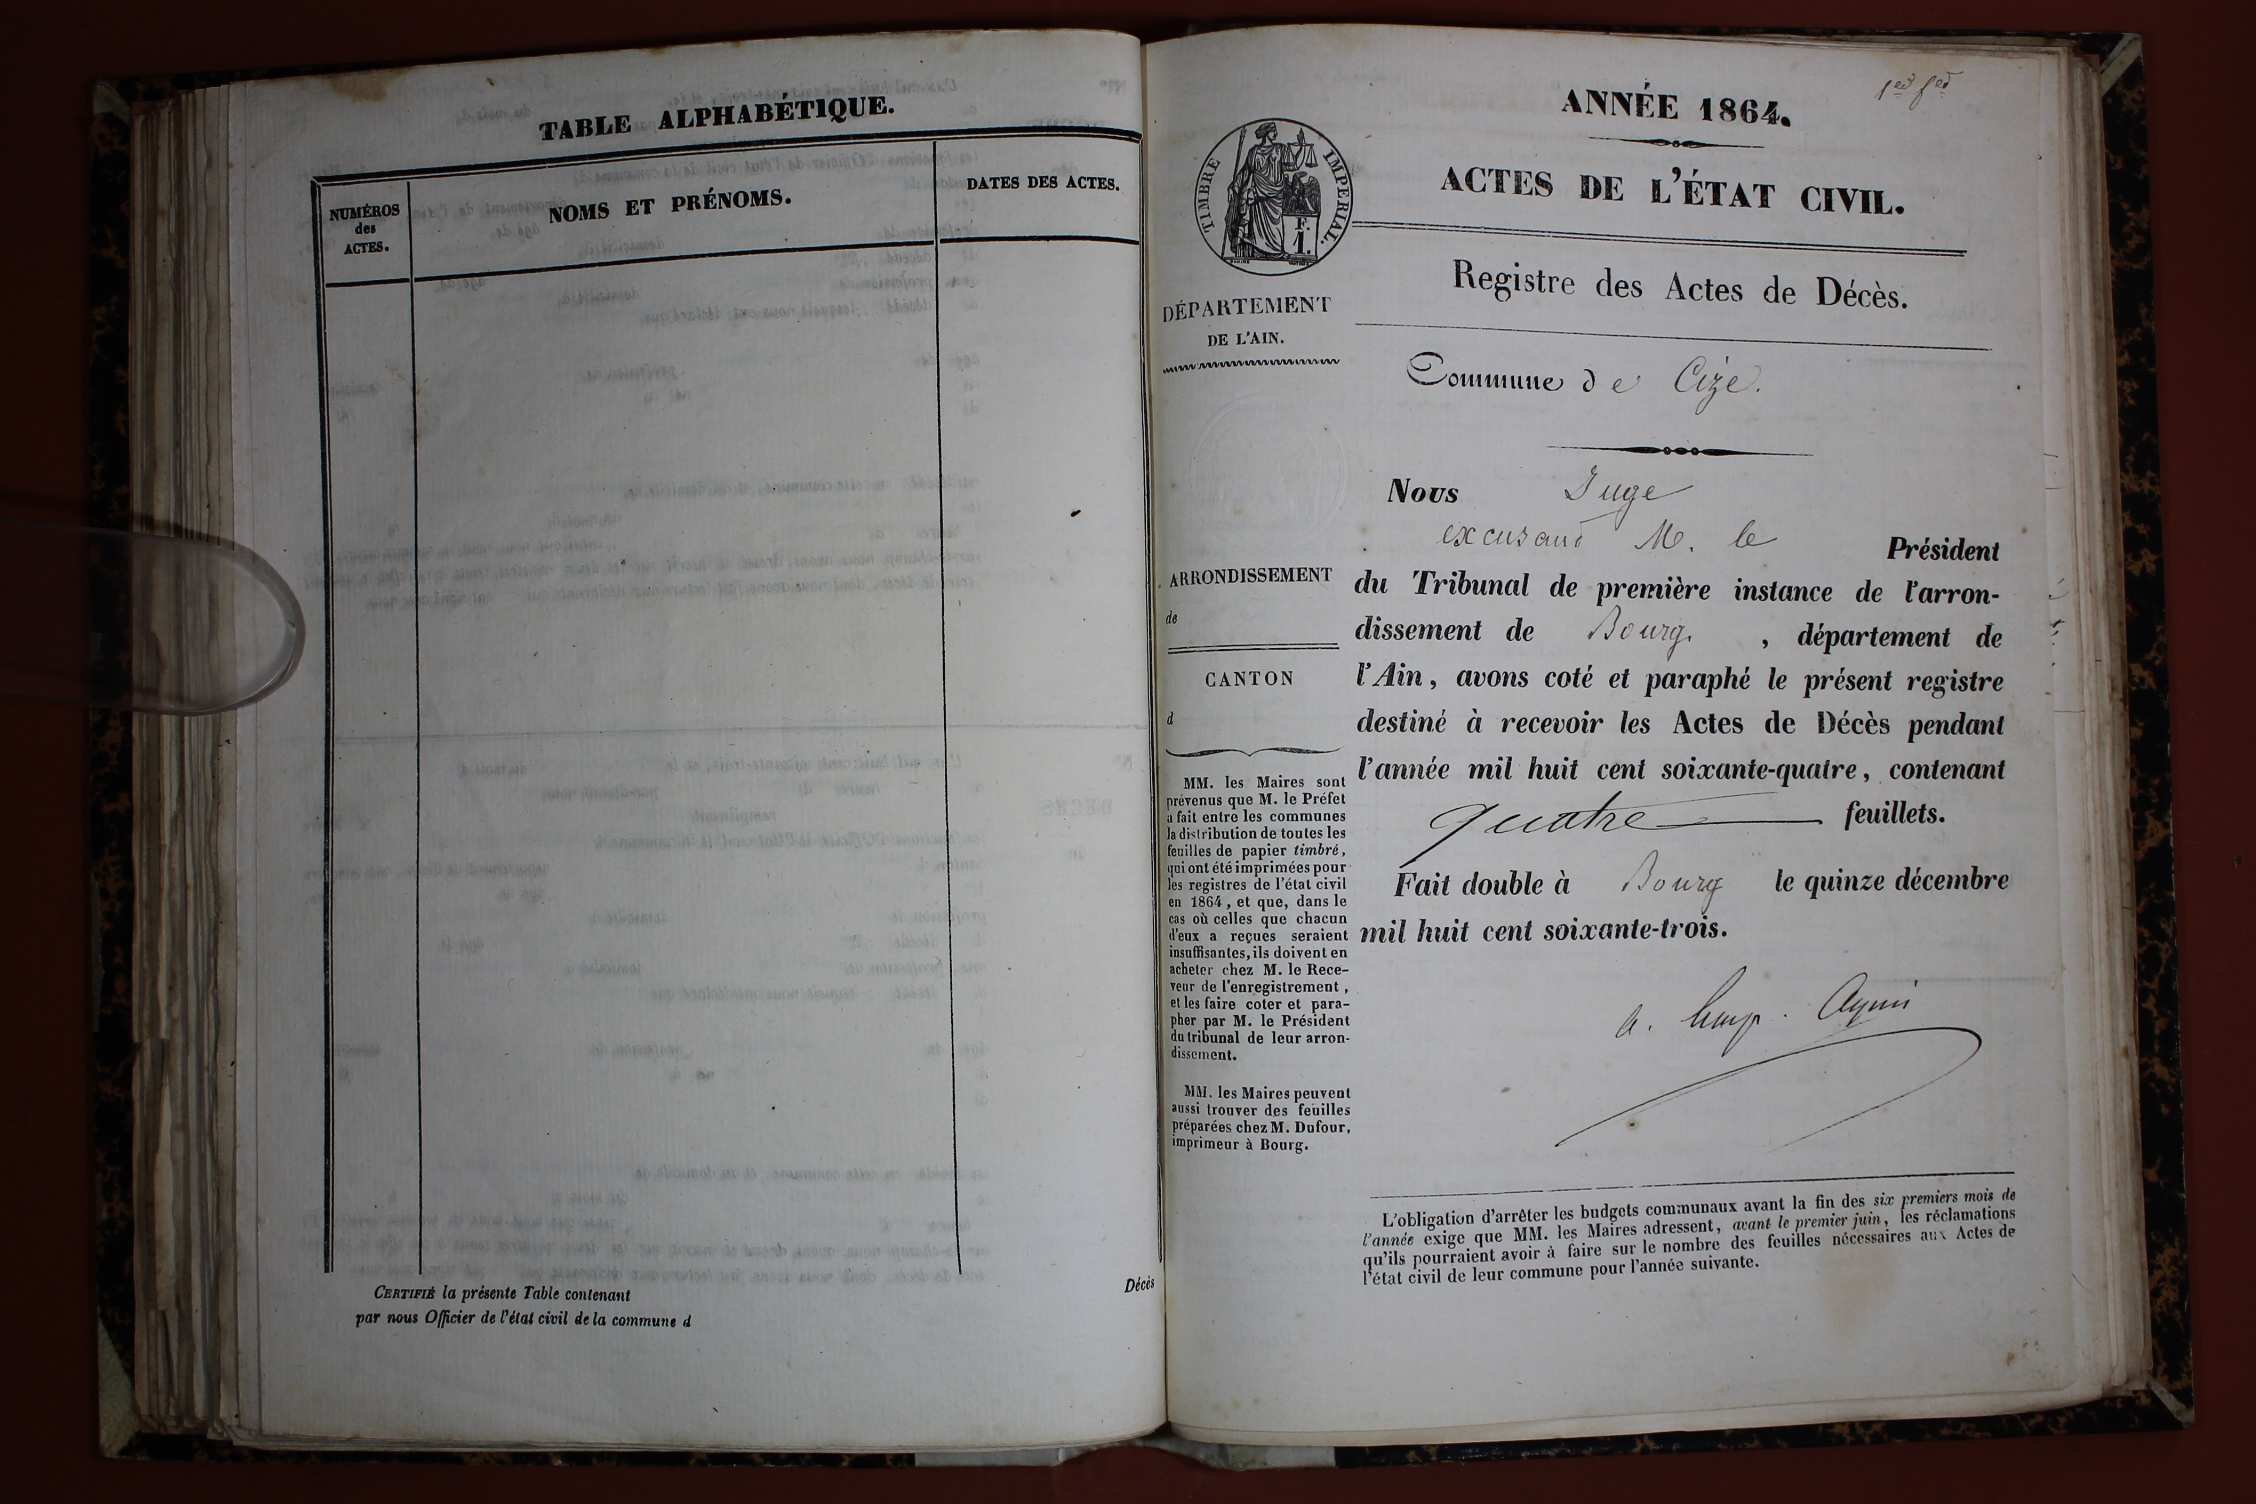 TABLE ALPHABÉTIQUE.
NUMÉROS
des
ACTES.
NOMS ET PRÉNOMS.
DATES DES ACTES.
CERTIFIÉ la présente Table contenant
par nous Officier de l'état civil de la commune d
Décès
ANNÉE 1864.
TIMBRE IMPERIAL.
F.
1.
ACTES DE L'ÉTAT CIVIL.
Registre des Actes de Décès.
DÉPARTEMENT
DE L'AIN.
Commune de Cize.
ARRONDISSEMENT
de
CANTON
d
MM. les Maires sont
prévenus que M. le Préfet
a fait entre les communes
la distribution de toutes les
feuilles de papier timbré,
qui ont été imprimées pour
les registres de l'état civil
en 1864, et que, dans le
cas où celles que chacun
d'eux a reçues seraient
insuffisantes, ils doivent en
acheter chez M. le Rece-
veur de l'enregistrement,
et les faire coter et para-
pher par M. le Président
du tribunal de leur arron-
dissement.
MM. les Maires peuvent
aussi trouver des feuilles
préparées chez M. Dufour,
imprimeur à Bourg.
Nous Juge
excusant M. le Président
du Tribunal de première instance de l'arron-
dissement de Bourg. , département de
l'Ain, avons coté et paraphé le présent registre
destiné à recevoir les Actes de Décès pendant
l'année mil huit cent soixante-quatre, contenant
quatre feuillets.
Fait double à Bourg le quinze décembre
mil huit cent soixante-trois.
L'obligation d'arrêter les budgets communaux avant la fin des six premiers mois de
l'année exige que MM. les Maires adressent, avant le premier juin, les réclamations
qu'ils pourraient avoir à faire sur le nombre des feuilles nécessaires aux Actes de
l'état civil de leur commune pour l'année suivante.